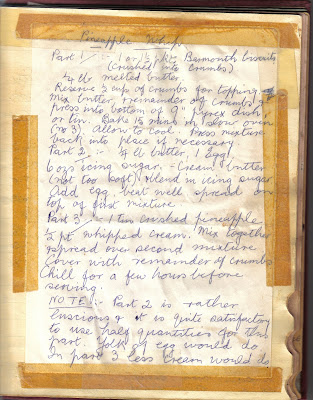 Pineapple Whip
Part 1/ - 1 or 1½ pkt Barmouth Biscuits
(crushed into crumbs)
¼ lb melted butter.
Reserve ½ cup of crumbs for topping
Mix butter, remainder of crumbs &
press into bottom of 9" Pyrex dish
or tin. Bake 15 mins in slow oven
(no 3). Allow to cool. Press mixture
back into place if necessary
Part 2 - ¼ lb butter, 1 Egg
6 ozs icing sugar. Cream butter
(not too soft) blend in icing sugar
Add egg, beat well spread on
top of first mixture
Part 3 - 1 tin crushed pineapple
½ pt whipped cream. Mix together
& spread over second mixture
Cover with remainder of crumbs
Chill for a few hours before
serving.
NOTE:- Part 2 is rather
luscious & it is quite satisfactory
to use half quantities for this
part. Yolk of egg would do
In part 3 less cream would do